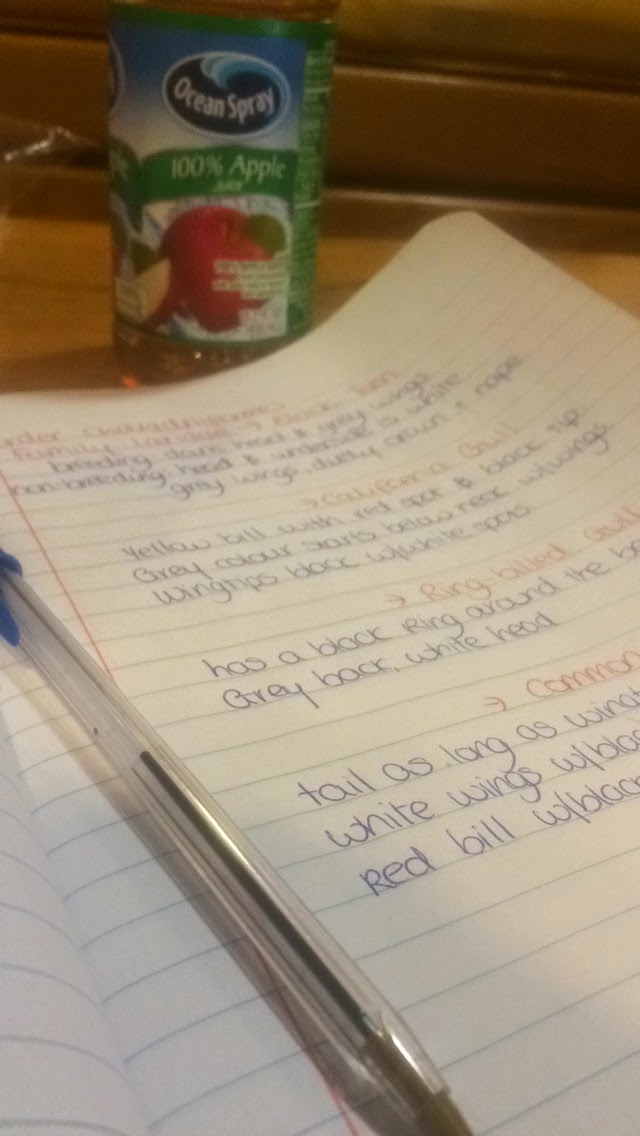 Ocean Spray
100% Apple
Juice
order Charadriiformes
Family Laridae → Black Tern
breeding dark head & grey wings
non-breeding head & underside is white
grey wings dusty crown + nape
→ California Gull
Yellow bill with red spot & black tip
Grey colour starts below neck w/wings
wingtips black w/white spots
→ Ring-billed Gull
has a black Ring around the
Grey back, white head
→ Common
tail as long as
white wings
Red bill